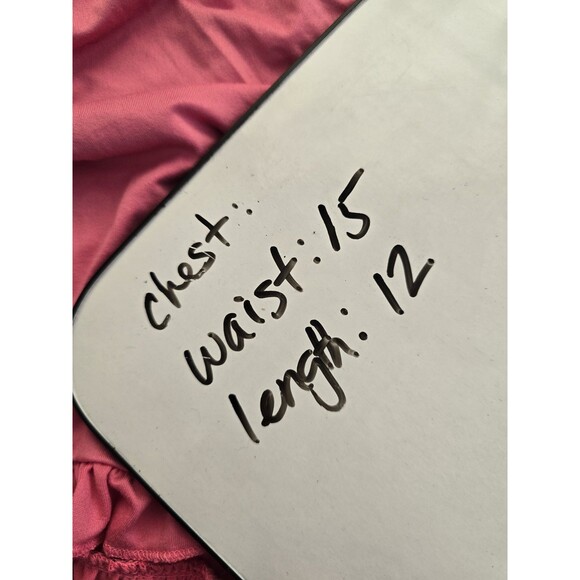 chest:
waist: 15
length: 12